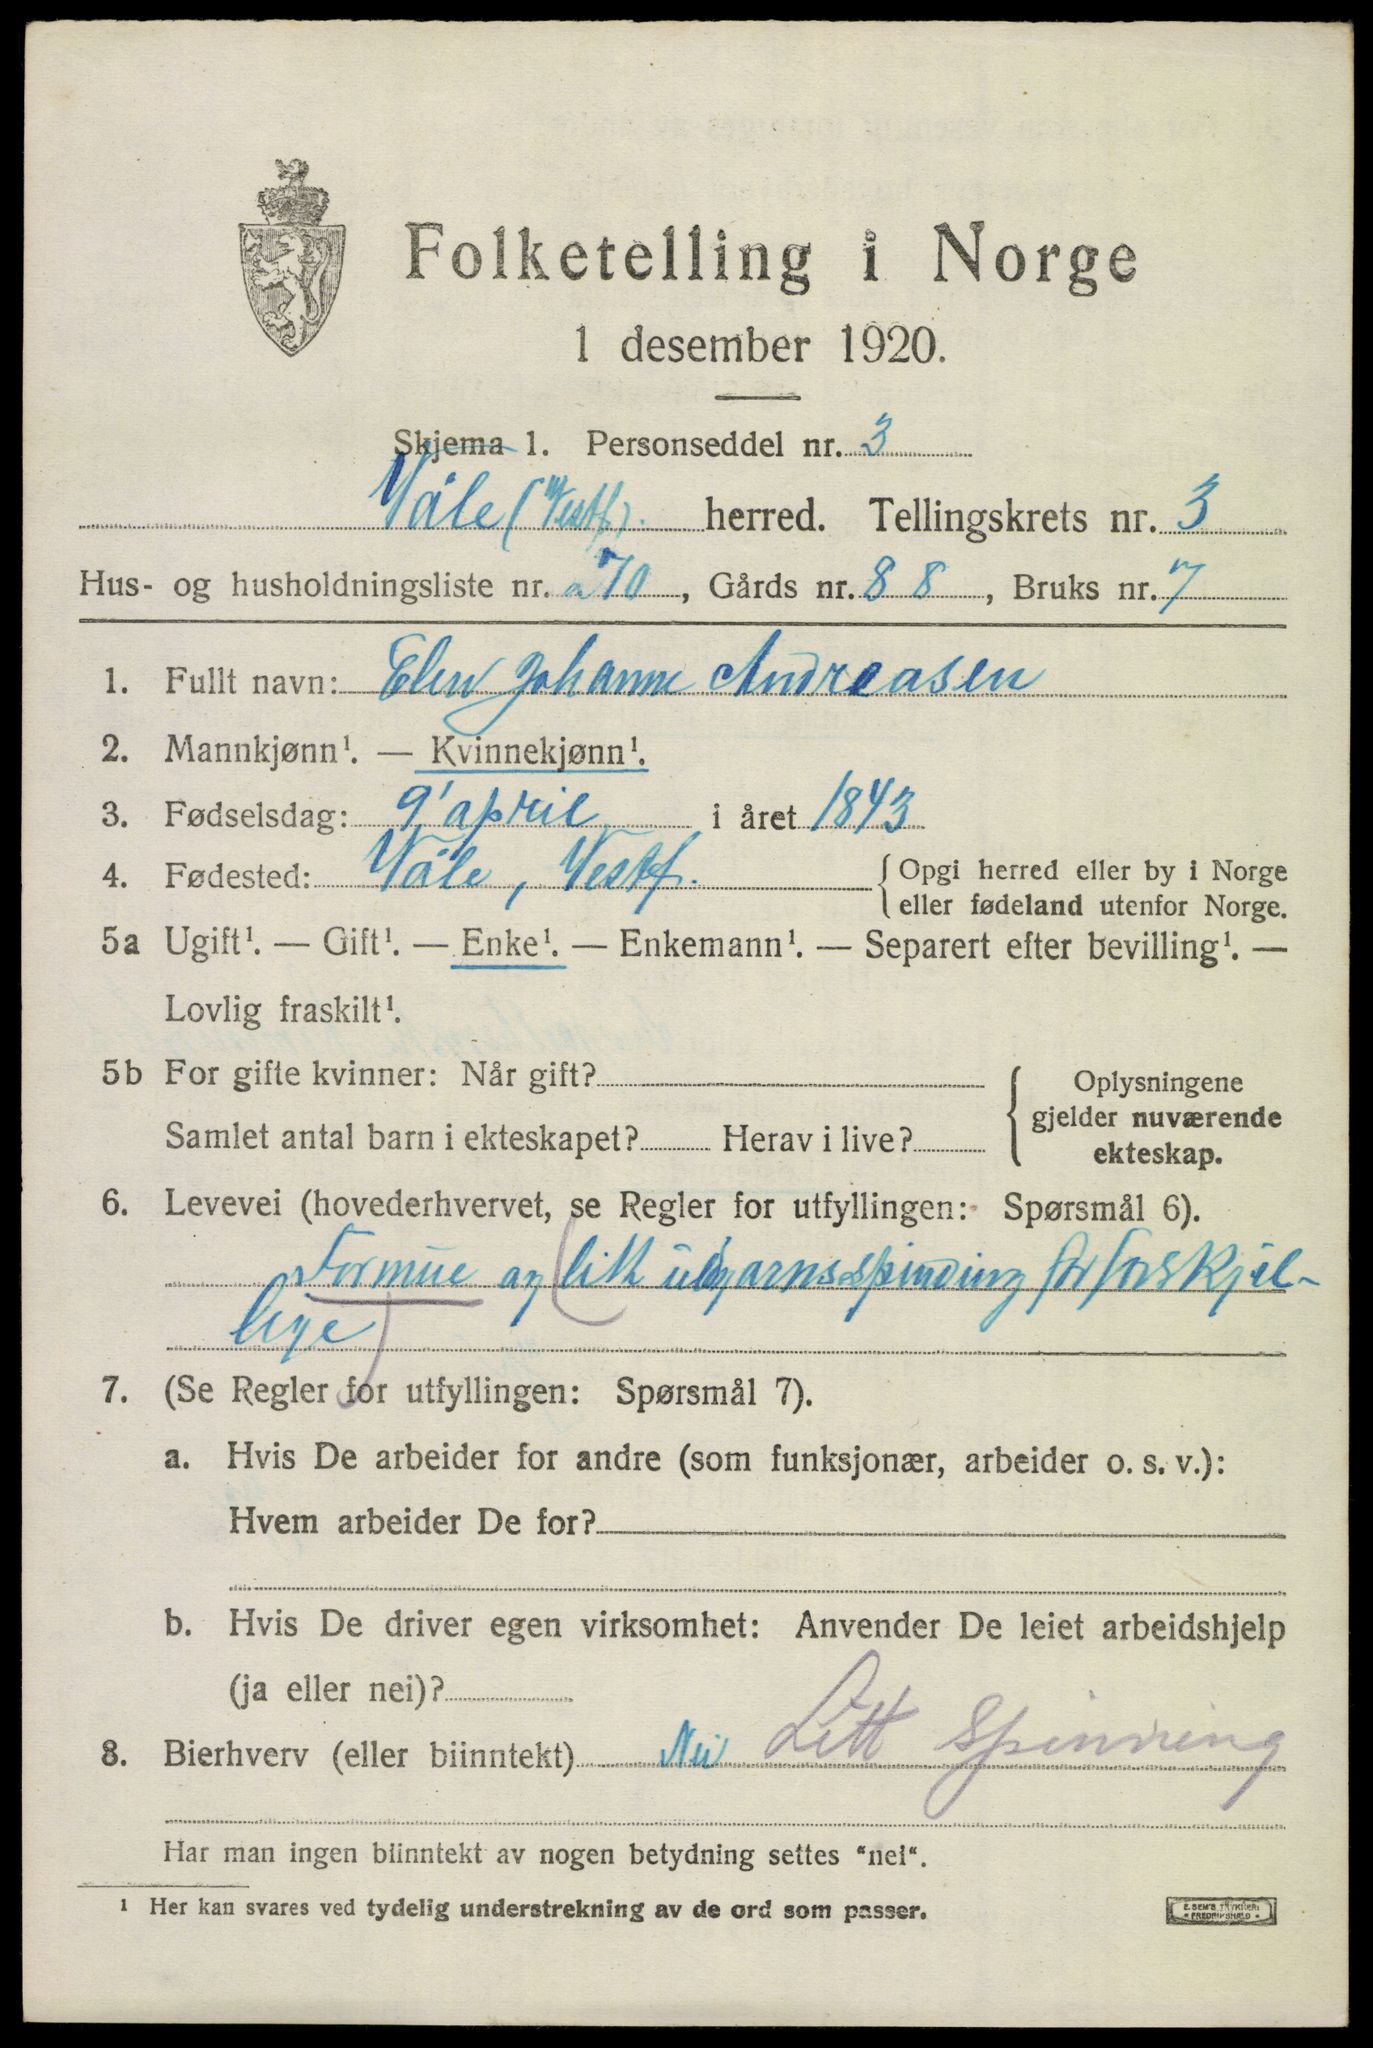 Folketelling i Norge
1 desember 1920.
Skjema 1. Personseddel nr. 3
Våle (Vestf). herred. Tellingskrets nr. 3
Hus- og husholdningsliste nr. 70, Gårds nr. 88, Bruks nr. 7
1. Fullt navn: Elen Johanne Andreasen
2. Mannkjønn¹. — Kvinnekjønn¹.
3. Fødselsdag: 9' april i året 1843
4. Fødested: Våle, Vestf. { Opgi herred eller by i Norge
eller fødeland utenfor Norge.
5a Ugift¹. — Gift¹. — Enke¹. — Enkemann¹. — Separert efter bevilling¹. —
Lovlig fraskilt¹.
5b For gifte kvinner: Når gift? { Oplysningene
gjelder nuværende
Samlet antal barn i ekteskapet? Herav i live?
ekteskap.
6. Levevei (hovederhvervet, se Regler for utfyllingen: Spørsmål 6).
Formue og (litt uldgarnsspinding for forskjel-
lige)
7. (Se Regler for utfyllingen: Spørsmål 7).
a. Hvis De arbeider for andre (som funksjonær, arbeider o. s. v.):
Hvem arbeider De for?
b. Hvis De driver egen virksomhet: Anvender De leiet arbeidshjelp
(ja eller nei)?
8. Bierhverv (eller biinntekt) Nei Litt spinning
Har man ingen biinntekt av nogen betydning settes "nei".
¹ Her kan svares ved tydelig understrekning av de ord som passer.
E. SEM'S TRYKKERI
FREDRIKSHALD